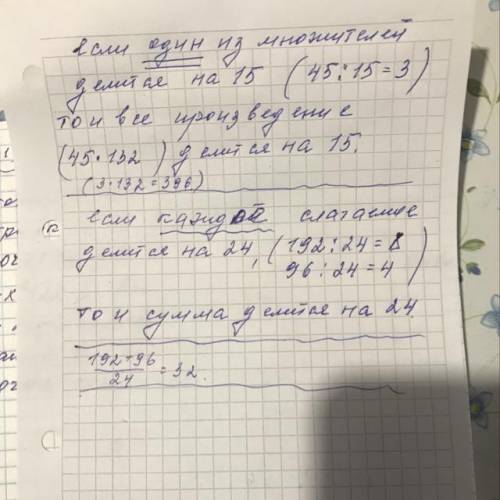 если один из множителей
делится на 15 (45:15=3)
то и все произведение
(45·132) делится на 15.
(3·132=396)
если каждое слагаемое
делится на 24, (192:24=8
96:24=4)
то и сумма делится на 24
192+96
24
=32.